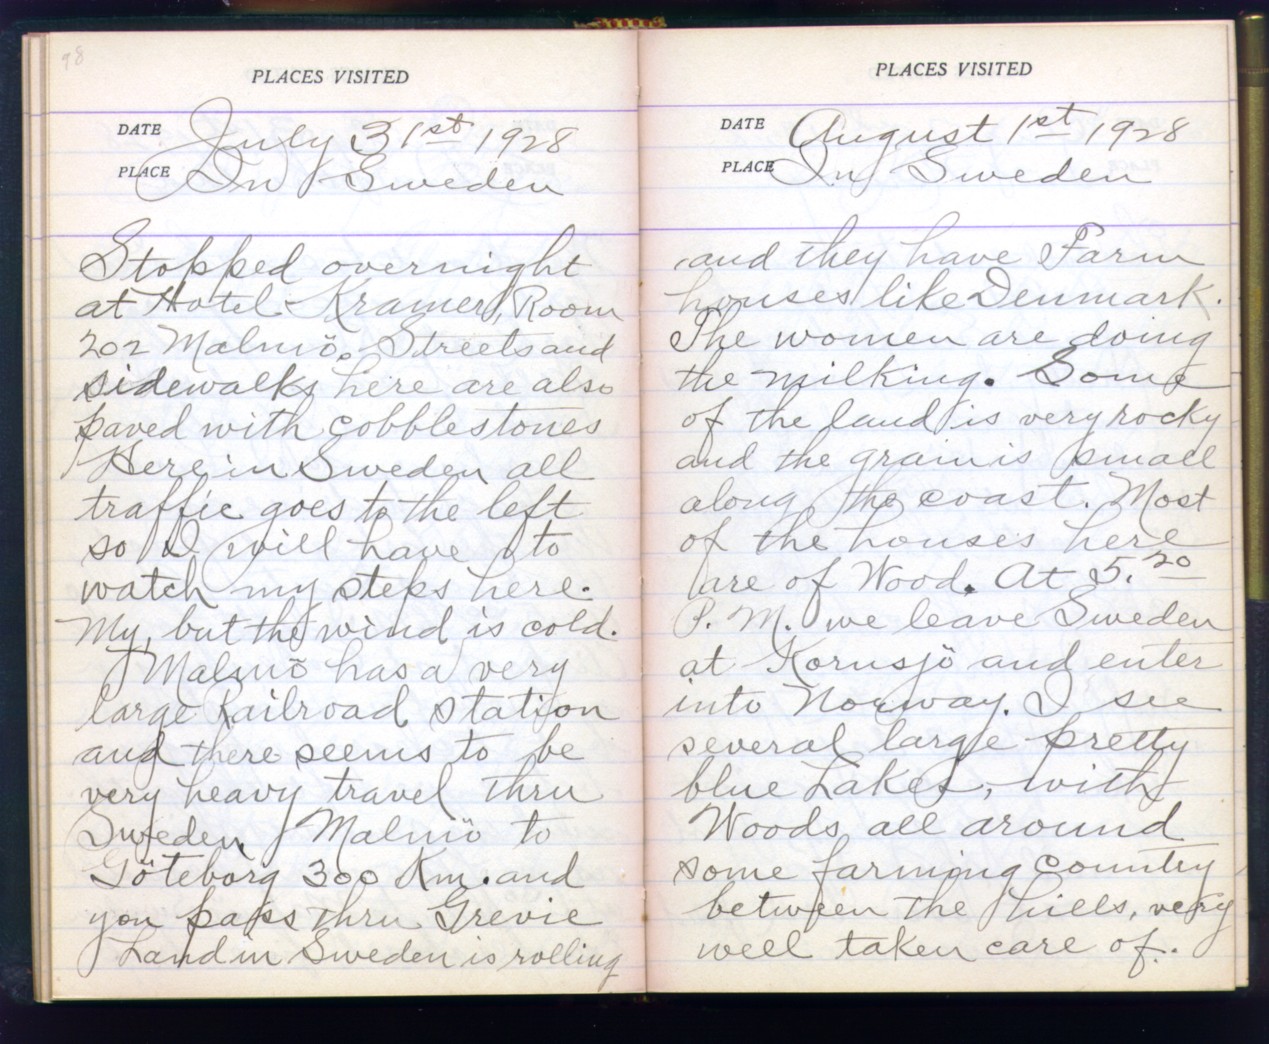 98
PLACES VISITED
DATE July 31st 1928
PLACE In Sweden
Stopped overnight
at Hotel Kramer, Room
202 Malmö. Streets and
sidewalks here are also
paved with cobblestones
Here in Sweden all
traffic goes to the left
so I will have to
watch my steps here.
My, but the wind is cold.
Malmö has a very
large Railroad station
and there seems to be
very heavy travel thru
Sweden. Malmö to
Göteborg 300 Km. and
you pass thru Grevie
Land in Sweden is rolling
PLACES VISITED
DATE August 1st 1928
PLACE In Sweden
and they have Farm
houses like Denmark.
The women are doing
the milking. Some
of the land is very rocky
and the grain is small
along the coast. Most
of the houses here
are of Wood. At 5.20
P.M. we leave Sweden
at Kornsjö and enter
into Norway. I see
several large pretty
blue Lakes, with
Woods all around
some farming country
between the hills, very
well taken care of.